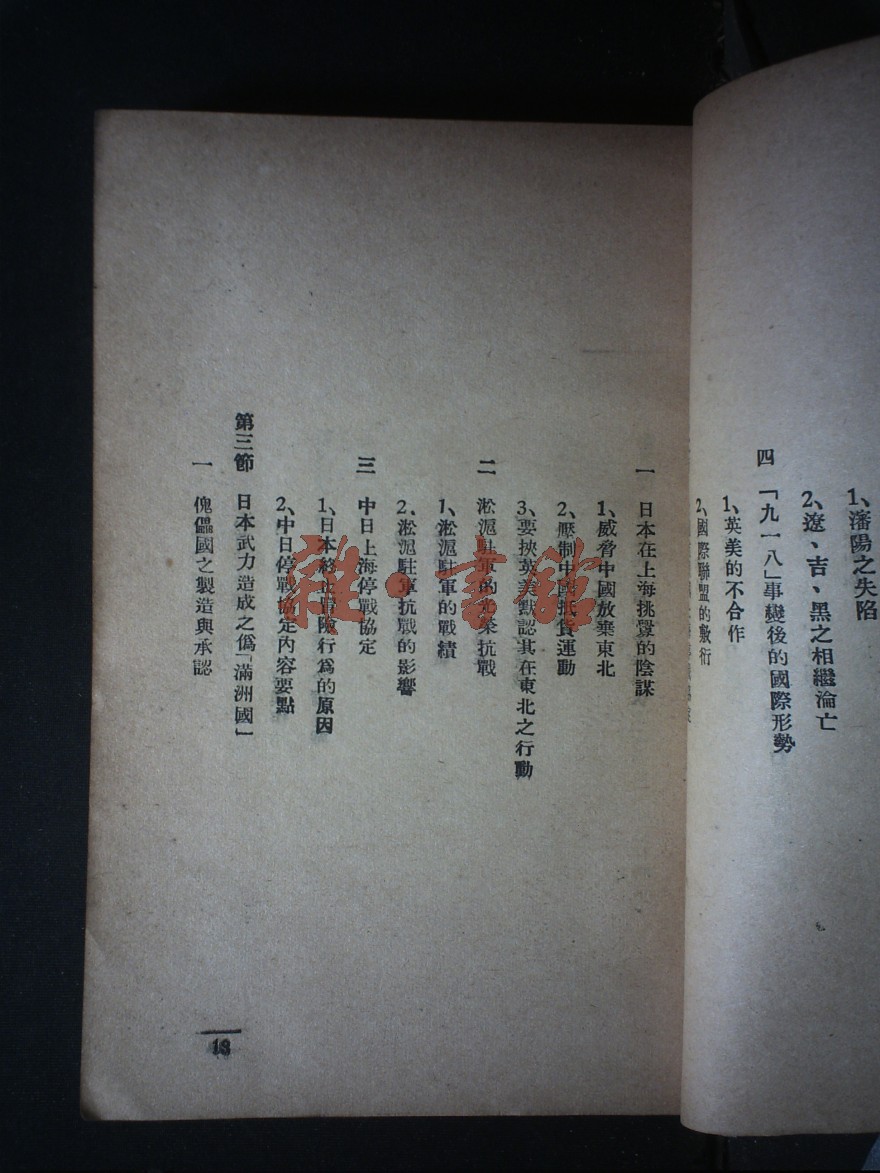 1、瀋陽之失陷
2、遼、吉、黑之相繼淪亡
四 「九一八」事變後的國際形勢
1、英美的不合作
2、國際聯盟的敷衍
一 日本在上海挑釁的陰謀
1、威脅中國放棄東北
2、壓制中國抵貨運動
3、要挾英美默認其在東北之行動
二 淞滬駐軍的光榮抗戰
1、淞滬駐軍的戰績
2、淞滬駐軍抗戰的影響
三 中日上海停戰協定
1、日本終止冒險行爲的原因
2、中日停戰協定內容要點
第三節 日本武力造成之僞「滿洲國」
一 傀儡國之製造與承認
13
雜·書館